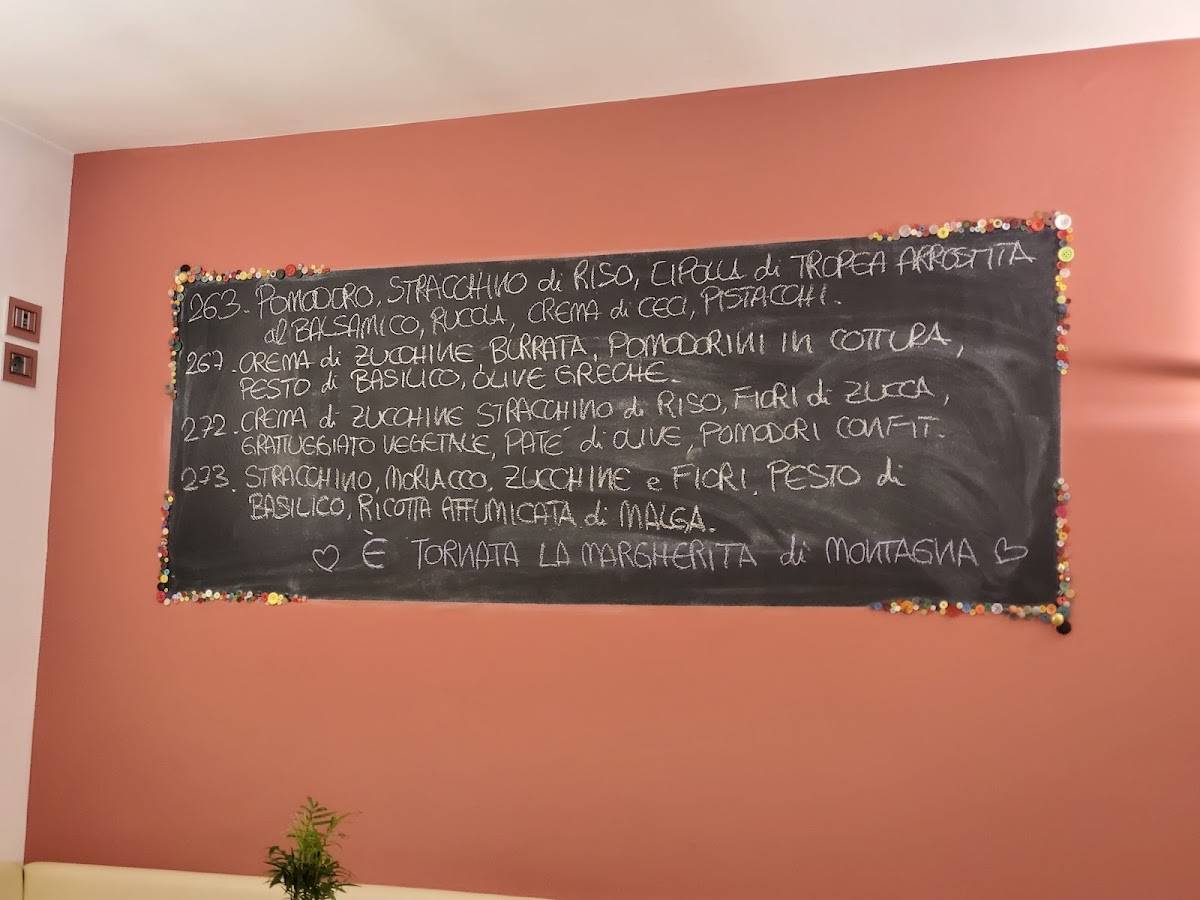 263. POMODORO, STRACCHINO di RISO, CIPOLLA di TROPEA ARROSTITA
al BALSAMICO, RUCOLA, CREMA di CECI, PISTACCHI.
267. CREMA di ZUCCHINE BURRATA, POMODORINI IN COTTURA,
PESTO di BASILICO, OLIVE GRECHE.
272. CREMA di ZUCCHINE STRACCHINO di RISO, FIORI di ZUCCA,
GRATTUGGIATO VEGETALE, PATÉ di OLIVE, POMODORI CONFIT.
273. STRACCHINO, MORLACCO, ZUCCHINE e FIORI, PESTO di
BASILICO, RICOTTA AFFUMICATA di MALGA.
♡ È TORNATA LA MARGHERITA di MONTAGNA ♡